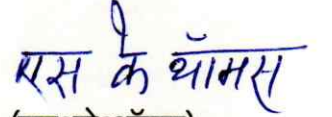 एस के थॉमस